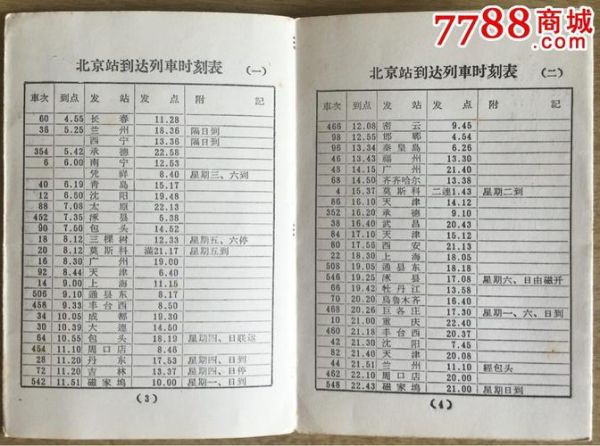 7788商城
.com
北京站到达列車时刻表 (一)
車次 到点 发站 发点 附記
60 4.55 长春 11.28
36 5.25 兰州 18.36 隔日到
西宁 13.36 隔日到
354 5.42 承德 22.58
6 6.00 南宁 12.53
凭祥 8.40 星期三、六到
40 6.19 青岛 15.17
12 6.50 沈阳 19.48
88 7.08 太原 22.13
452 7.35 涿县 5.38
90 7.50 包头 14.52
18 8.12 三棵树 12.33 星期五、六停
20 8.12 莫斯科 满21.17 星期五到
16 8.30 广州 19.00
92 8.44 天津 6.40
14 9.00 上海 11.15
506 9.10 通县东 8.17
458 9.33 丰台西 8.50
34 10.05 成都 19.30
30 10.39 大连 14.50
64 10.55 包头 18.19 星期四、日联运
454 11.10 周口店 8.46
28 11.20 丹东 17.53 星期四、日到
72 11.20 吉林 13.37 星期四、日停
542 11.51 磁家坞 10.00 星期一、日到
(3)
北京站到达列車时刻表 (二)
車次 到点 发站 发点 附記
466 12.08 密云 9.45
98 12.55 邯郸 4.54
96 13.34 秦皇島 6.26
46 13.43 福州 13.30
48 14.15 广州 21.40
68 14.50 齐齐哈尔 13.38
4 15.37 莫斯科 二連1.43 星期二到
86 16.10 天津 14.12
352 16.20 承德 9.10
38 16.40 武昌 20.43
84 17.10 天津 15.12
80 17.55 西安 21.13
22 18.30 上海 18.05
508 19.05 通县东 18.18
546 19.05 涿县 17.08 星期六、日由磁开
66 19.42 牡丹江 13.58
70 20.20 烏魯木齐 16.40
268 20.26 巨各庄 17.30 星期一、六、日到
10 21.00 重庆 22.40
460 21.18 丰台西 20.37
42 21.30 沈阳 7.45
82 21.40 天津 20.08
44 21.51 兰州 11.10 經包头
462 22.10 周口店 21.00
548 22.43 磁家坞 21.00 星期日到
(4)